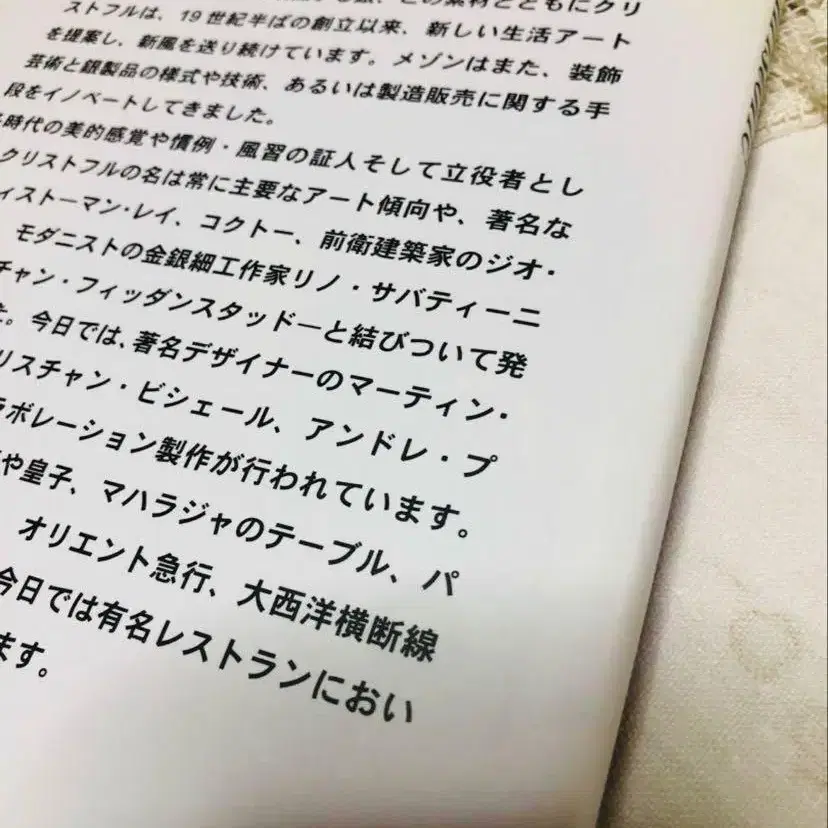 この素材とともにクリ
ストフルは、19世紀半ばの創立以来、新しい生活アート
を提案し、新風を送り続けています。メゾンはまた、装飾
芸術と銀製品の様式や技術、あるいは製造販売に関する手
段をイノベートしてきました。
時代の美的感覚や慣例・風習の証人そして立役者とし
クリストフルの名は常に主要なアート傾向や、著名な
ィストーマン・レイ、コクトー、前衛建築家のジオ・
モダニストの金銀細工作家リノ・サバティーニ
チャン・フィッダンスタッドーと結びついて発
た。今日では、著名デザイナーのマーティン・
リスチャン・ビシェール、アンドレ・プ
ラボレーション製作が行われています。
や皇子、マハラジャのテーブル、パ
オリエント急行、大西洋横断線
今日では有名レストランにおい
ます。